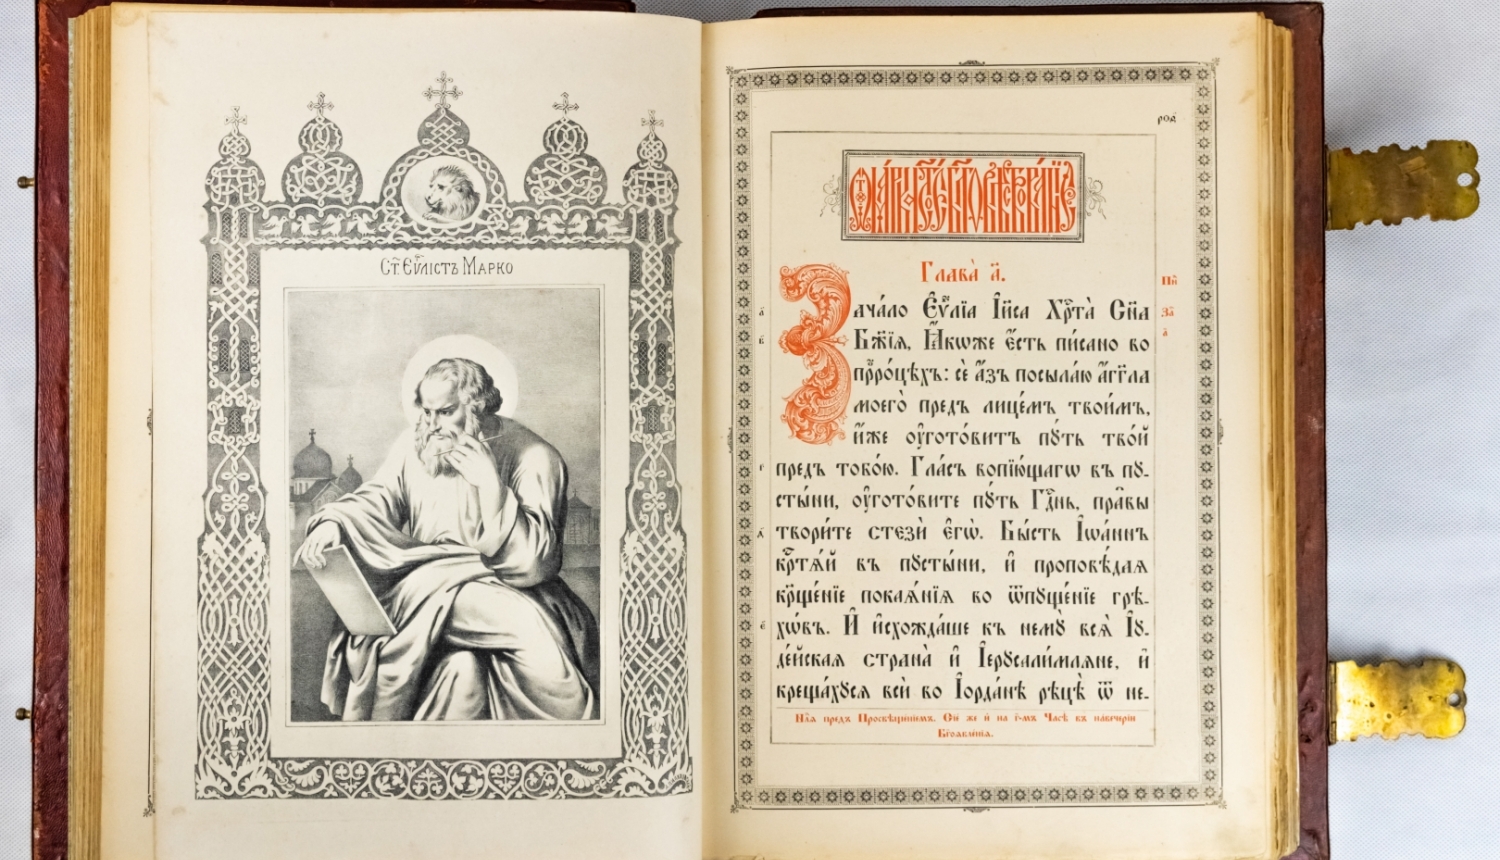 Ст҃ Еѵ҃лістъ Марко
роа҃
Ѿ Марка ст҃о́е бл҃говѣствова́нїе
Глава̀ а҃.
Зача́ло Є҆ѵ҃лїа І҆и҃са Хрⷭ҇та̀ Сн҃а
Бж҃їѧ, Ꙗ҆́коже є҆́сть пи́сано во
прⷪ҇ро́цѣхъ: сѐ а҆́зъ посыла́ю а҆́гг҃ла
моего̀ предъ лице́мъ твои́мъ,
и҆́же ᲂу҆гото́витъ пꙋ́ть тво́й
предъ тобо́ю. Гла́съ вопїю́щагѡ въ пꙋ-
сты́ни, ᲂу҆гото́вите пꙋ́ть Гдⷭ҇нь, пра̑вы
твори́те стезѝ є҆гѡ̀. Бы́сть І҆ѡа́ннъ
кр҃тѧ́й въ пꙋсты́ни, и҆ проповѣ́даѧ
кр҃ще́нїе покаѧ́нїѧ во ѿпꙋще́нїе грѣ-
хѡ́въ. И҆ и҆схожда́ше къ немꙋ̀ всѧ̀ І҆ꙋ-
де́йскаѧ страна̀ и҆ І҆ерꙋсали́млѧне, и҆
креща́хꙋсѧ всѝ во І҆ѻрда́нѣ рѣцѣ̀ ѿ не-
Нл҃ѧ предъ Просвѣще́нїемъ. Сїѐ же и҆ на г҃-мъ Часѣ̀ въ наве́черїи
Бг҃оѧвле́нїѧ.